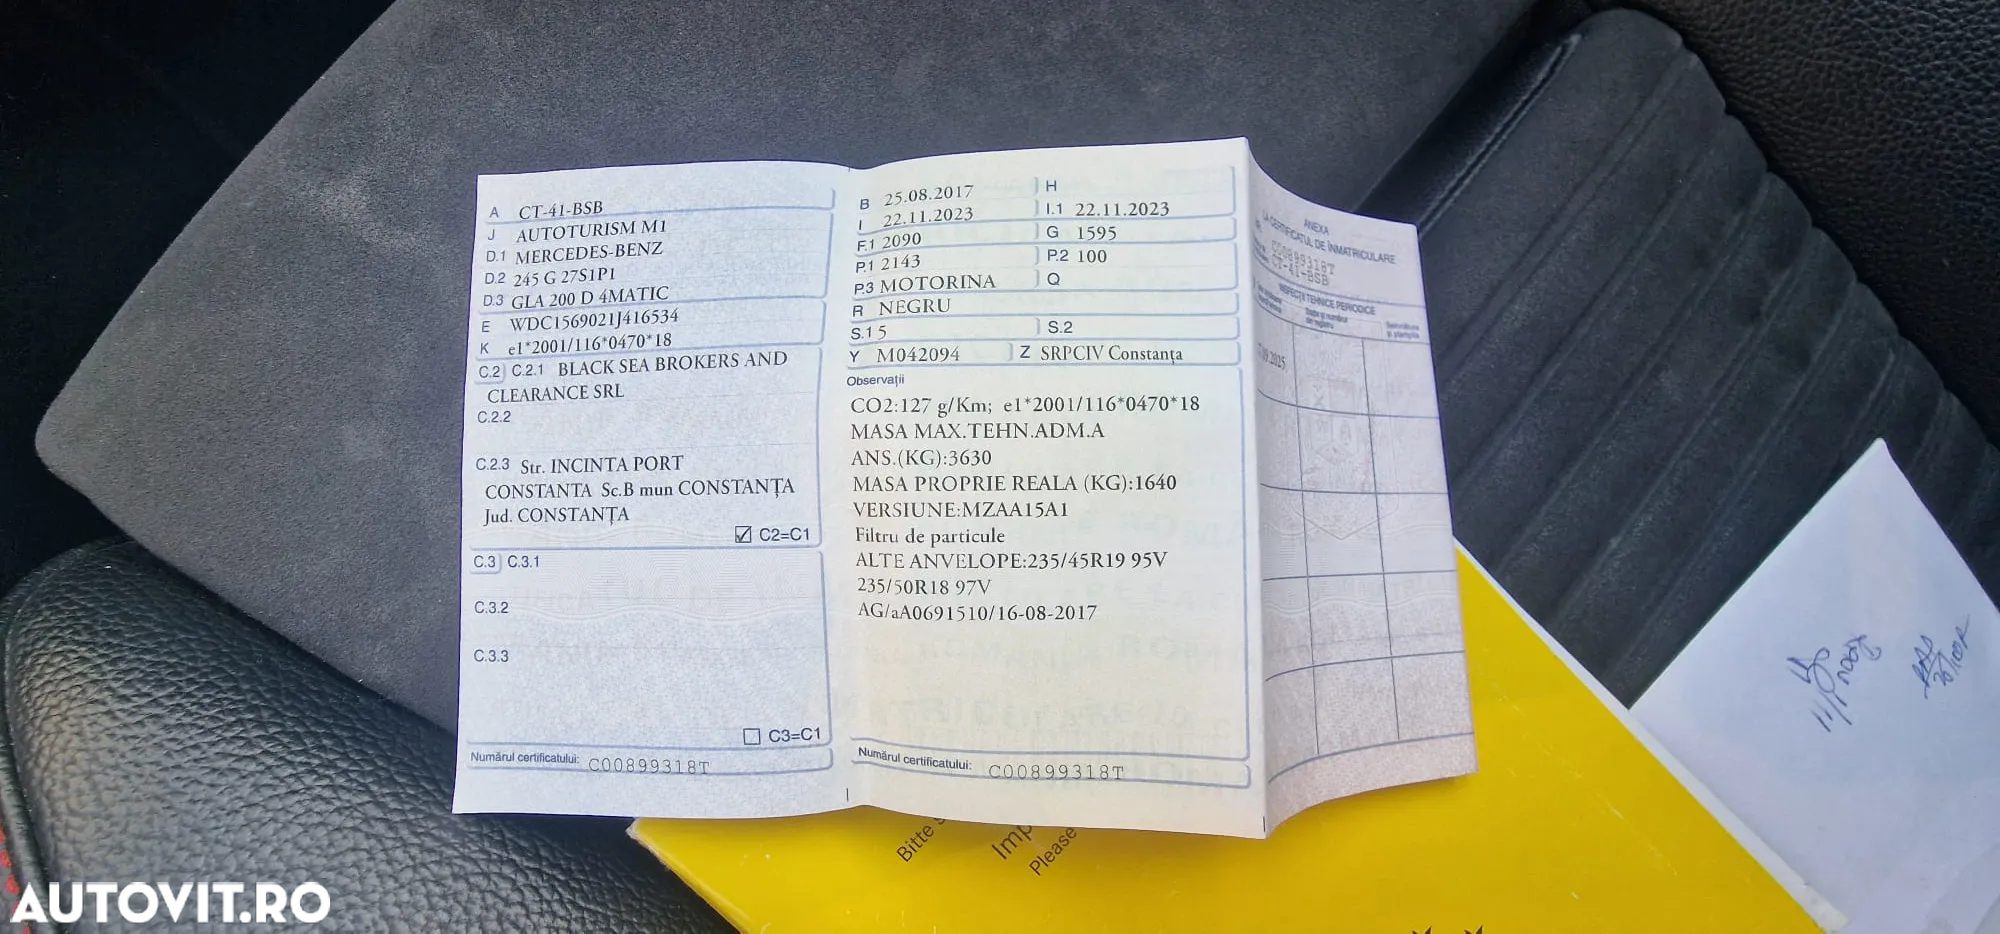 A CT-41-BSB
J AUTOTURISM M1
D.1 MERCEDES-BENZ
D.2 245 G 27S1P1
D.3 GLA 200 D 4MATIC
E WDC1569021J416534
K e1*2001/116*0470*18
C.2 C.2.1 BLACK SEA BROKERS AND
CLEARANCE SRL
C.2.2
C.2.3 Str. INCINTA PORT
CONSTANTA Sc.B mun CONSTANȚA
Jud. CONSTANȚA
C2=C1
C.3 C.3.1
C.3.2
C.3.3
C3=C1
Numărul certificatului: C00899318T
B 25.08.2017 H
I 22.11.2023 I.1 22.11.2023
F.1 2090 G 1595
P.1 2143 P.2 100
P.3 MOTORINA Q
R NEGRU
S.1 5 S.2
Y M042094 Z SRPCIV Constanța
Observații
CO2:127 g/Km; e1*2001/116*0470*18
MASA MAX.TEHN.ADM.A
ANS.(KG):3630
MASA PROPRIE REALA (KG):1640
VERSIUNE:MZAA15A1
Filtru de particule
ALTE ANVELOPE:235/45R19 95V
235/50R18 97V
AG/aA0691510/16-08-2017
Numărul certificatului: C00899318T
ANEXA
LA CERTIFICATUL DE ÎNMATRICULARE
C00899318T
CT-41-BSB
INSPECȚII TEHNICE PERIODICE
Bitte
Imp
Please
AUTOVIT.RO